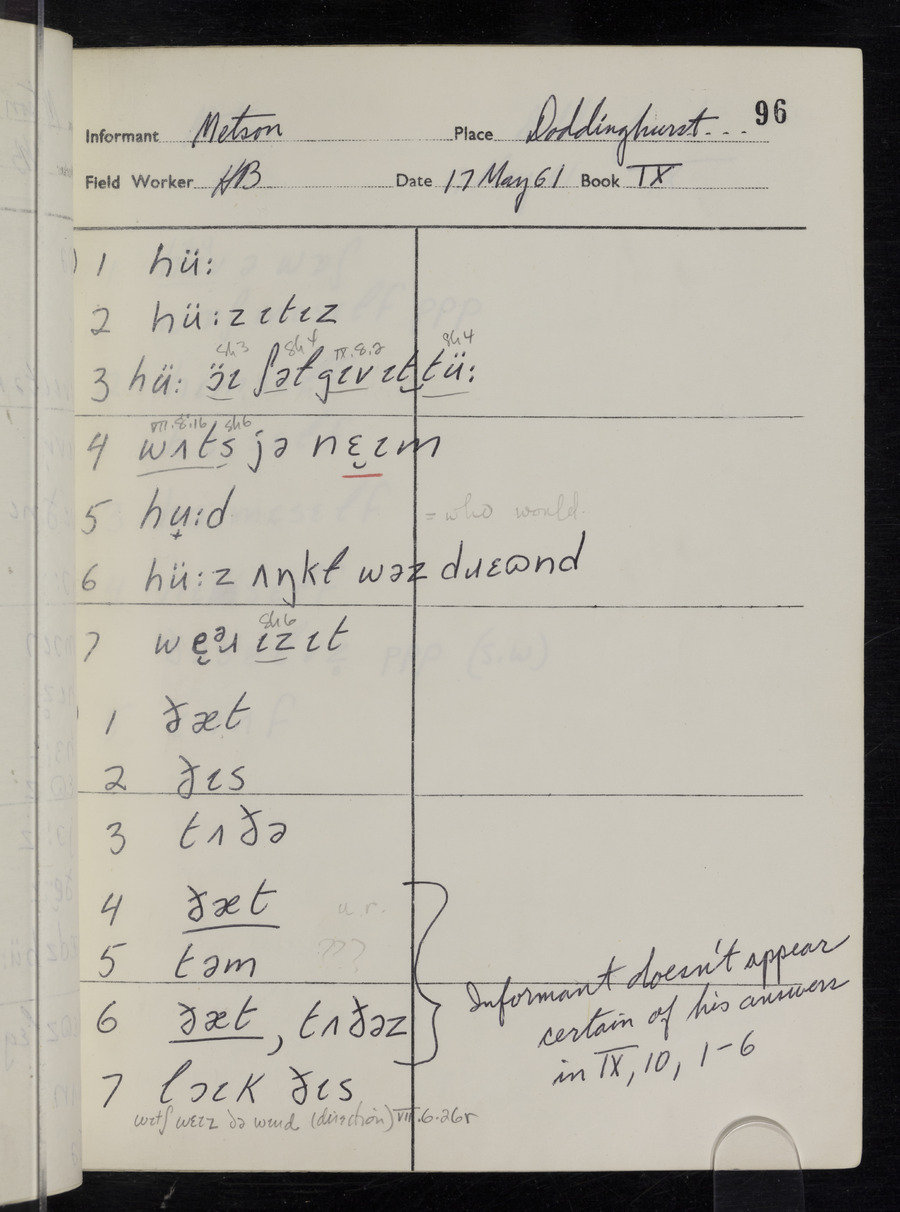 96
Informant Metson Place Doddinghurst...
Field Worker HB Date 17 May 61 Book IX
) 1 hü:
2 hü:zɪtɪz
sh3 sh4 IX.8.2 sh4
3 hü: ɔ̈ɪ ʃəl gɪv ɪt tü:
VII.8.16 sh6
4 wʌts jə nɛ̣ɪm
5 hụ:d = who would.
6 hü:z ʌŋkl wəz dɹɛɷnd
sh6
7 wẹəɹ ɪz ɪt
) 1 ðæt
2 ðɪs
3 tʌðə
4 ðæt u.r.
5 təm ???
6 ðæt, tʌðəz
Informant doesn't appear
certain of his answers
in IX, 10, 1-6
7 lɔɪk ðɪs
wɪtʃ wɛɪz ðə wɪnd (direction) VII.6.26r